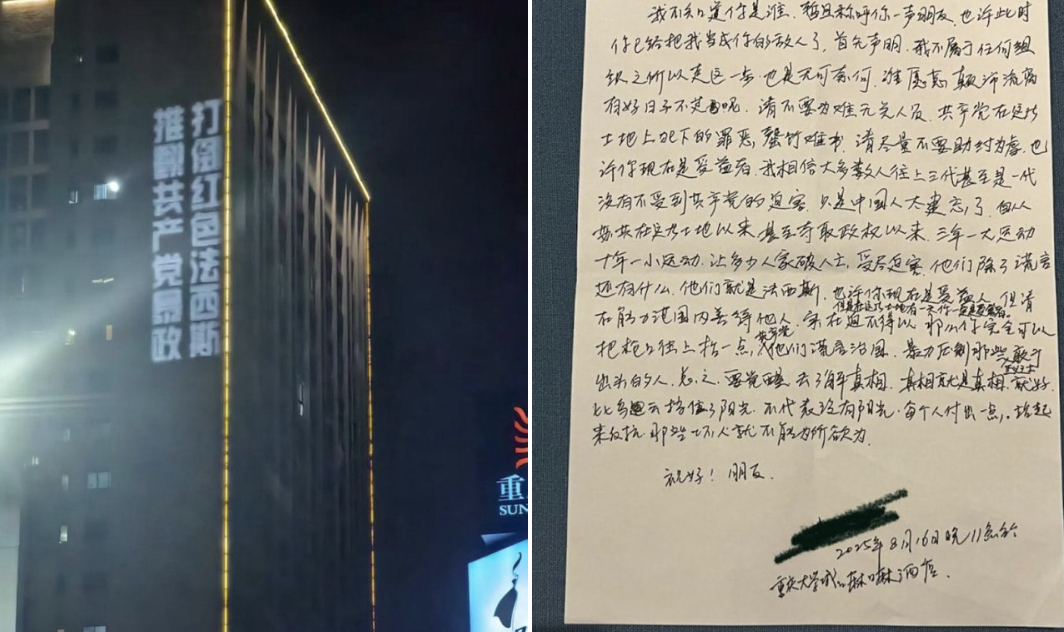 打倒红色法西斯
推翻共产党暴政
重
SUN
我不知道你是谁、暂且称呼你一声朋友、也许此时
你已经把我当成你的敌人了,首先声明,我不属于任何组
织之所以走这一步也是无可奈何,谁愿意颠沛流离
有好日子不过呢,请不要为难无关人员,共产党在这片
土地上犯下的罪恶,罄竹难书,请尽量不要助纣为虐,也
许你现在是受益者,我相信大多数人往上三代甚至是一代
没有不受到共产党的迫害,只是中国人太健忘了,自从
在这片土地以来甚至夺取政权以来,三年一大运动
十年一小运动,让多少人家破人亡,受尽迫害,他们除了谎言
还有什么,他们就是法西斯,也许你现在是受益人,但请
但是在这片土地有一天你一定是受害者。
在能力范围内善待他人,实在迫不得以,那么你完全可以
共产党
把枪口往上抬一点,他们谎言治国,暴力压制那些敢于
出头的人,总之,要觉醒去了解真相,真相就是真相,就好
比乌云挡住了阳光,不代表没有阳光,每个人付出一点,站起
来反抗,那些坏人就不能为所欲为
祝好!朋友
2025年8月16日晚11点于
重庆大学城酒店